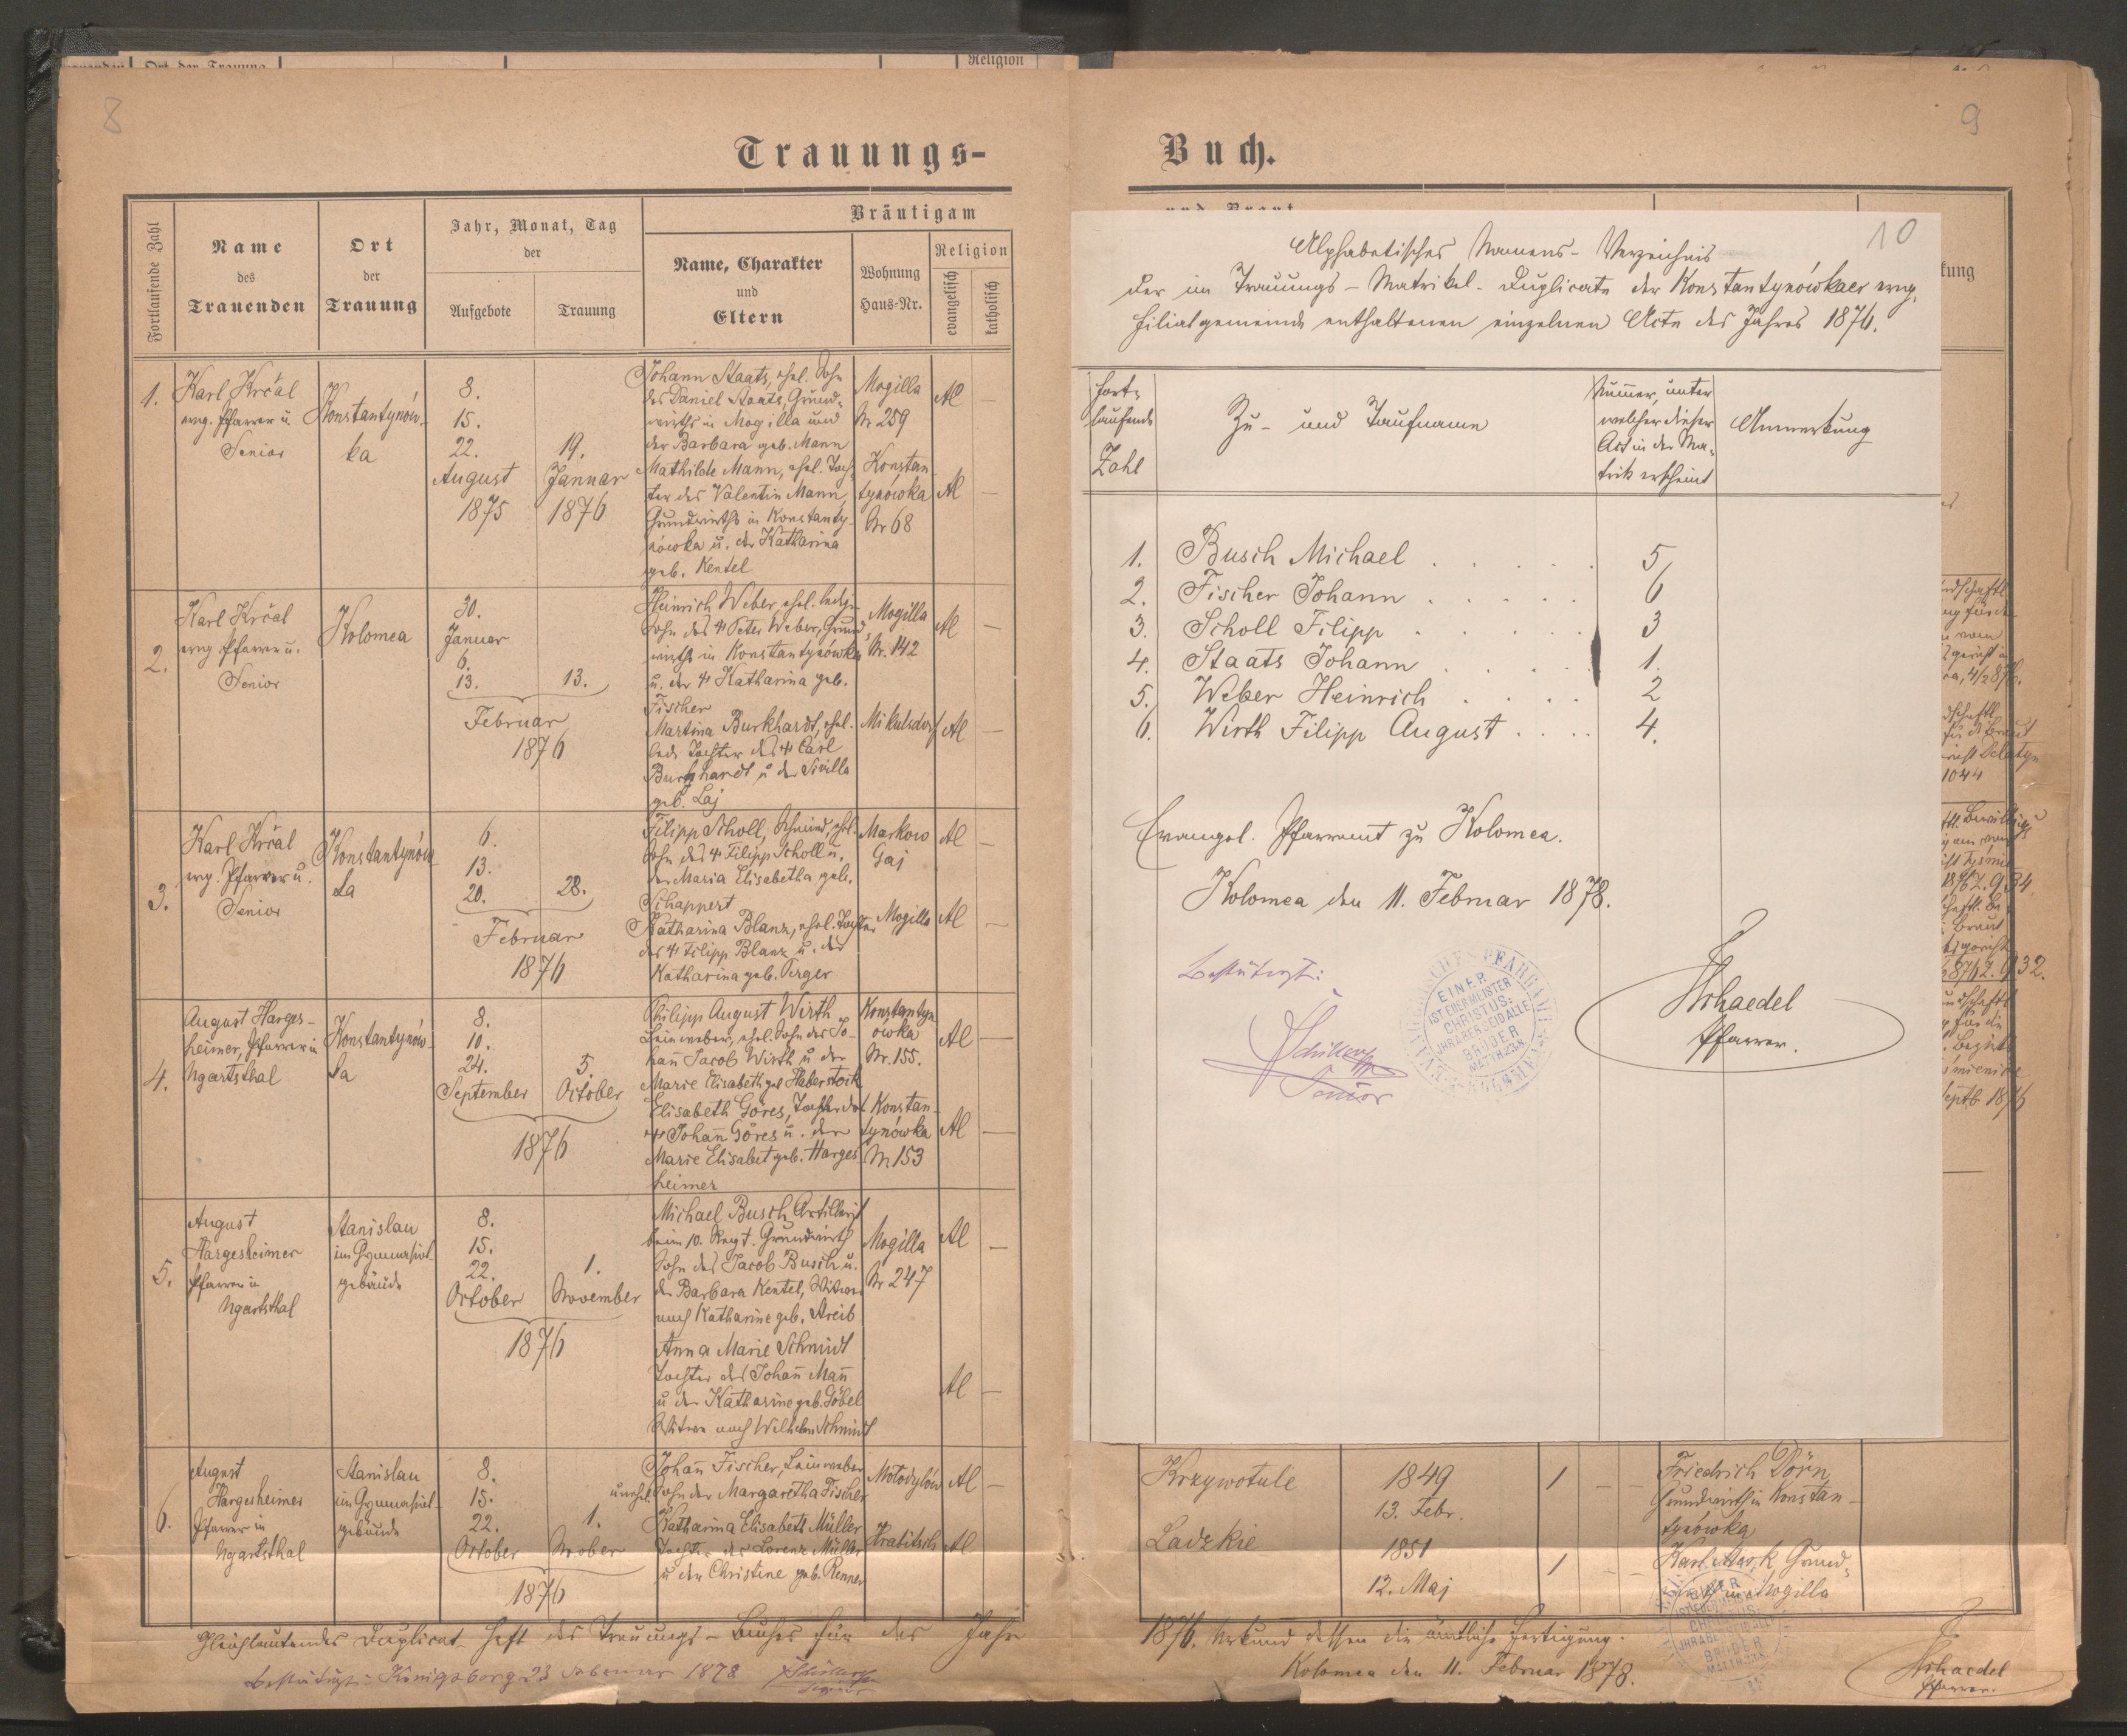 Ort der Trauung
Religion
8
Trauungs-
Fortlaufende Zahl
Name
des
Trauenden
Ort
der
Trauung
Jahr, Monat, Tag
der
Aufgebote
Trauung
Bräutigam
Name, Charakter
und
Eltern
Wohnung
Haus-Nr.
Religion
evangelisch
katholisch
1.
Karl Krčal
evg. Pfarrer u.
Senior
Konstantynów-
ka
8.
15.
22.
August
1875
19.
Januar
1876
Johann Staats, ehel. Sohn
des Daniel Staats, Grund-
wirths in Mogilla und
der Barbara geb. Mann
Mogilla
Nr 259
Al
—
Mathilde Mann, ehel. Toch-
ter des Valentin Mann,
Grundwirths in Konstanty-
nówka u. der Katharina
geb. Kentel
Konstan-
tynówka
Nr 68
Al
—
2.
Karl Krčal
evg Pfarrer u.
Senior
Kolomea
30.
Januar
6.
13.
13.
Februar
1876
Heinrich Weber, ehel. led.
Sohn des † Peter Weber, Grund-
wirths in Konstantynówka
u. der † Katharina geb.
Fischer
Mogilla
Nr. 142
Al
—
Martina Burkhardt, ehel.
led. Tochter des † Carl
Burkhardt u der Sivilla
geb. Laj
Mikulsdorf
Al
—
3.
Karl Krčal
evg. Pfarrer u.
Senior
Konstantynów
ka
6.
13.
20.
28.
Februar
1876
Filipp Scholl, Schmied, ehel.
Sohn des † Filipp Scholl u.
der Maria Elisabetha geb.
Schappert
Markow
Gaj
Al
—
Katharina Blanz, ehel. Tochter
des † Filipp Blanz u. der
Katharina geb. Perger
Mogilla
Al
—
4.
August Harges-
heimer, Pfarrer in
Ugartsthal
Konstantynów-
ka
8.
10.
24.
September
5.
October
1876
Philipp August Wirth
Leinweber, ehel. Sohn des Jo-
hañ Jacob Wirth u der
Marie Elisabeth geb Haberstock
Konstantyn
ówka
Nr. 155.
Al
—
Elisabeth Göres, Tochter des
† Johañ Göres u. der
Marie Elisabet geb. Harges
heimer
Konstan-
tynówka
Nr 153
Al
—
5.
August
Hargesheimer
Pfarrer in
Ugartsthal
Stanislau
im Gymnasial-
gebäude
8.
15.
22.
October
1.
November
1876
Michael Busch, Artillerist
beim 10. Regt. Grundwirth
Sohn des Jacob Busch u.
der Barbara Kentel, Witwer
nach Katharine geb. Streib
Mogilla
Nr 247
Al
—
Anna Marie Schmidt
Tochter des Johañ Mañ
u der Katharine geb. Göbel
Witwe nach Wilhelm Schmidt
Al
—
6.
August
Hargesheimer
Pfarrer in
Ugartsthal
Stanislau
im Gymnasial-
gebäude
8.
15.
22.
October
1.
Nvober
1876
Johañ Fischer, Leinweber
unehel. Sohn der Margaretha Fischer
Mołodyłów
Al
—
Katharina Elisabeth Müller
Tochter des Lorenz Müller
u der Christine geb. Renner
Hrabitsch
Al
Gleichlautendes Duplicat-Heft des Trauungs-Buches für das Jahr
bestätigt: Königsberg 23 Februar 1878
Senior
9
Buch.
10
Alphabetisches Namens-Verzeichnis
der im Trauungs-Matrikel-Duplicate der Konstantynówkaer evg.
Filialgemeinde enthaltenen einzelnen Acte des Jahres 1876.
Fort-
laufende
Zahl
Zu- und Taufname
Nummer, unter
welcher dieser
Act in der Ma-
trik erscheint
Anmerkung
1. Busch Michael . . . . . 5
2. Fischer Johann . . . . . 6
3. Scholl Filipp . . . . . 3
4. Staats Johann . . . . . 1.
5. Weber Heinrich . . . . 2
6. Wirth Filipp August . . . . 4.
Evangel. Pfarramt zu Kolomea.
Kolomea den 11. Februar 1878.
bestätigt:
Senior
EINER
IST EUER MEISTER
CHRISTUS:
IHR ABER SEID ALLE
BRÜDER
MATTH 23,8.
Schaedel
Pfarrer.
kung
1044
Krzywotule
1849
13. Febr.
1
—
—
Friedrich Dörn,
Grundwirth in Konstan-
tynówka
Ladzkie
1851
12. Maj
1
—
—
Grund-
Mogilla
1876. Urkund dessen die ämtliche Fertigung.
Kolomea den 11. Februar 1878.
EINER
IST EUER MEISTER
CHRISTUS:
IHR ABER SEID ALLE
BRÜDER
MATTH 23,8.
Schaedel
Pfarrer.